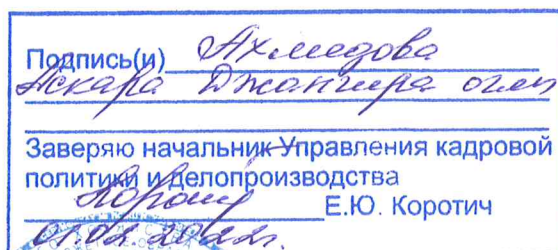 Подпись(и) Ахмедова
Аскара Джангира оглы
Заверяю начальник Управления кадровой
политики и делопроизводства
Е.Ю. Коротич
01.02.2022г.